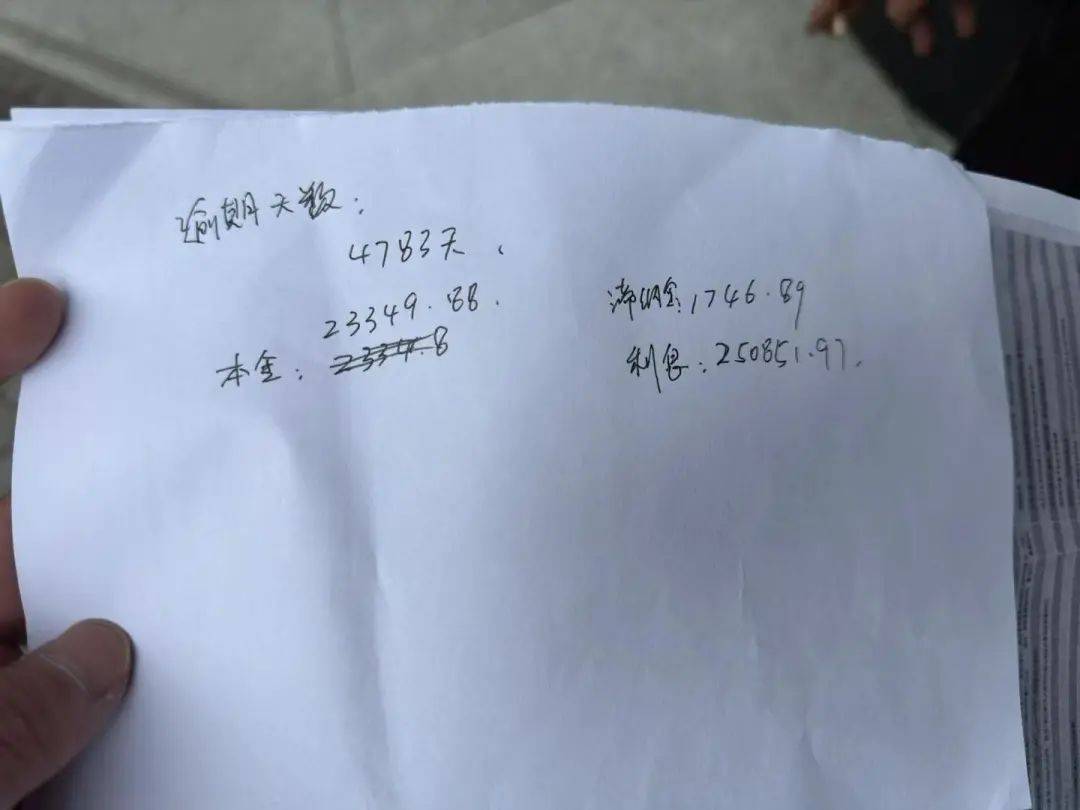 逾期天数：
4783天、
23349.88.
本金：2334.8
滞纳金：1746.89
利息：250851.97.